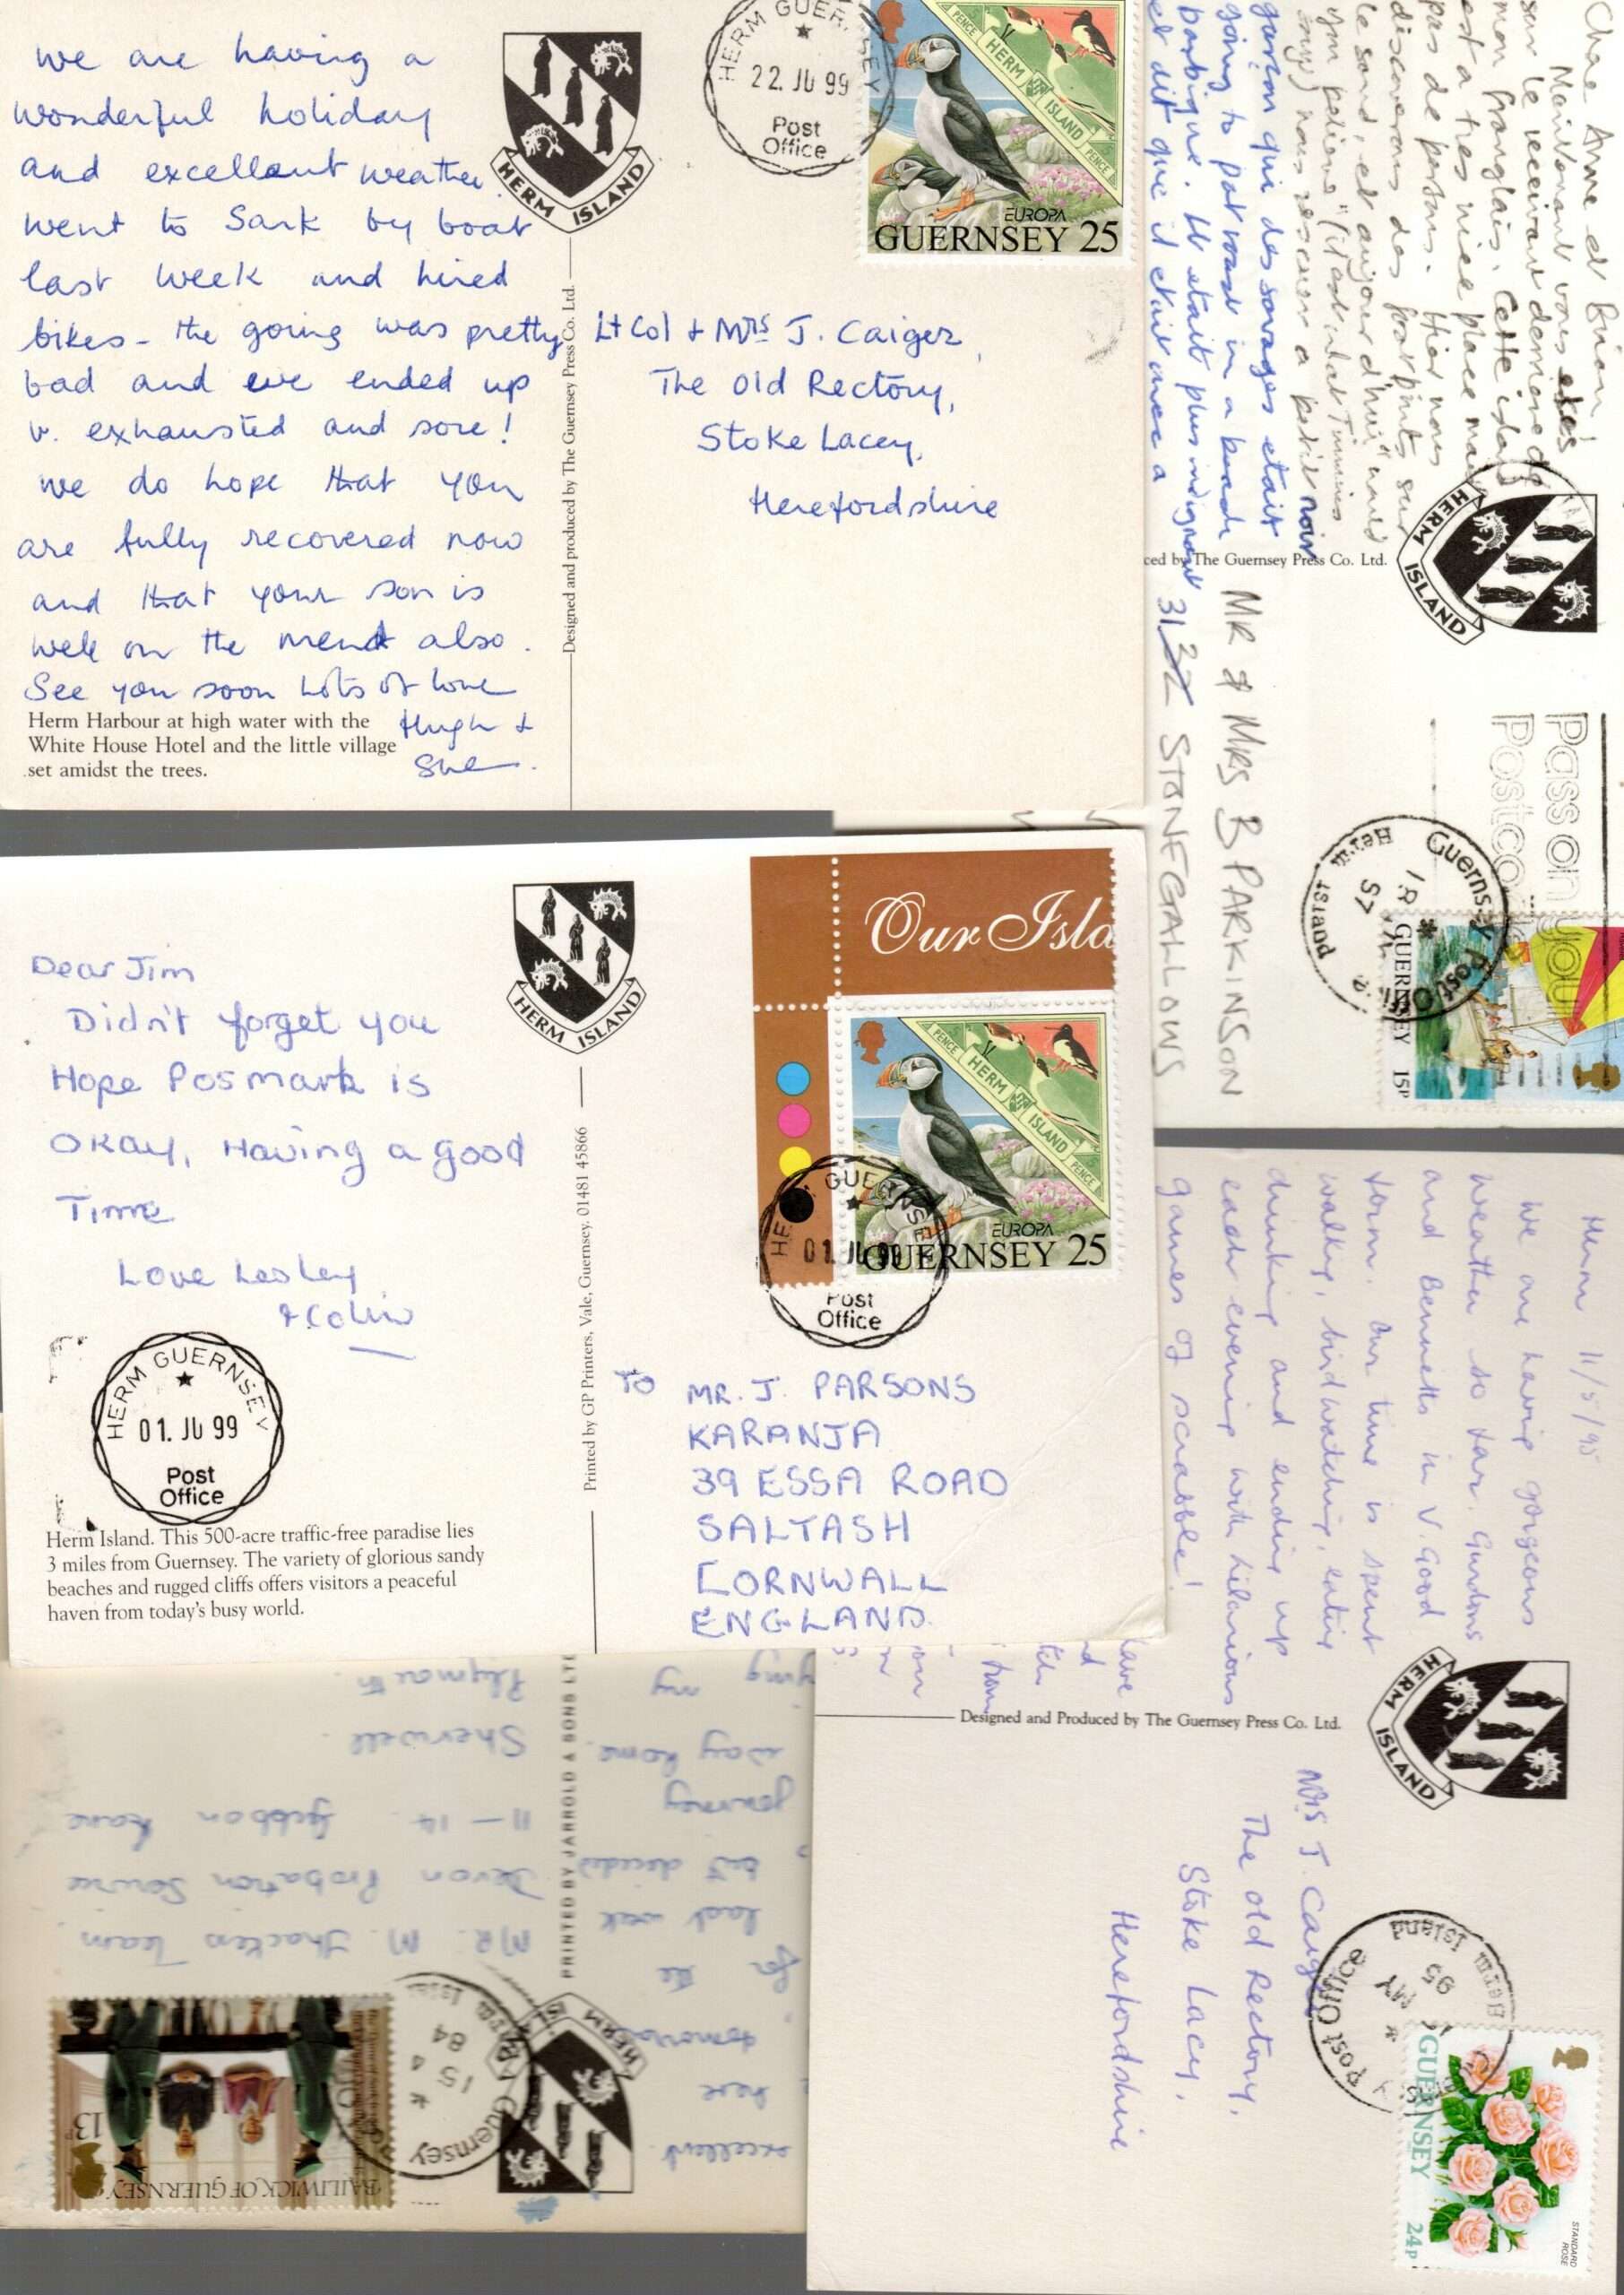 we are having a
wonderful holiday
and excellent weather
went to Sark by boat
last week and hired
bikes - the going was pretty
bad and we ended up
v. exhausted and sore!
we do hope that you
are fully recovered now
and that your son is
well on the mend also.
See you soon Lots of love
Hugh &
Sue.
Herm Harbour at high water with the
White House Hotel and the little village
set amidst the trees.
HERM ISLAND
Designed and produced by The Guernsey Press Co. Ltd.
HERM GUERNSEY
22. JU 99
Post
Office
PENCE HERM ISLAND PENCE
EUROPA
GUERNSEY 25
Lt Col & Mrs J. Caiger,
The Old Rectory,
Stoke Lacey,
Herefordshire
Chere Anne et Brian
Maintenant vous etes
sur le receivant derriere de
mon franglais. Cette island
est a tres nice place mais
pas de parsons. Hier nous
discoverons des footprints sur
le sand, et aujourd'hui "would
you believe" (
nous rescuer a petit noir
garçon qui des savages etait
going to pot roast in a beach
barbique. Il etait plus indignant
et dit que il etait once a
ced by The Guernsey Press Co. Ltd.
HERM ISLAND
MR & MRS B PARKINSON
31 STONEGALLOWS
Pass on your
Postcode
Guernsey Post Office
Herm Island
GUERNSEY 15P
Dear Jim
Didn't forget you
Hope Posmark is
Okay, Having a good
Time
Love Lesley
& Colin
HERM GUERNSEY
01. JU 99
Post
Office
Herm Island. This 500-acre traffic-free paradise lies
3 miles from Guernsey. The variety of glorious sandy
beaches and rugged cliffs offers visitors a peaceful
haven from today's busy world.
HERM ISLAND
Printed by GP Printers, Vale, Guernsey. 01481 45866
Our Isla
PENCE HERM ISLAND PENCE
EUROPA
GUERNSEY 25
HERM GUERNSEY
01. JU 99
Post
Office
TO MR. J. PARSONS
KARANJA
39 ESSA ROAD
SALTASH
CORNWALL
ENGLAND.
Herm 11/5/95
We are having gorgeous
weather so far. Gardens
and Bennetts in v. good
form. Our time is spent
walking, birdwatching, eating
drinking and ending up
each evening with hilarious
games of scrabble!
Designed and Produced by The Guernsey Press Co. Ltd.
HERM ISLAND
Mrs J. Caiger
The Old Rectory,
Stoke Lacy,
Herefordshire
Post Office
MY
95
Herm Island
GUERNSEY
24p
STANDARD
ROSE
excellent.
here
tomorrow
for the
last week
but decided
journey
way home.
my
HERM ISLAND
PRINTED BY JARROLD & SONS LTD
Guernsey
15 4
84
BAILIWICK OF GUERNSEY
13p
MR. M. Thackers Team
Devon Probation Service
11 - 14 Gibbon Lane
Sherwell
Plymouth.